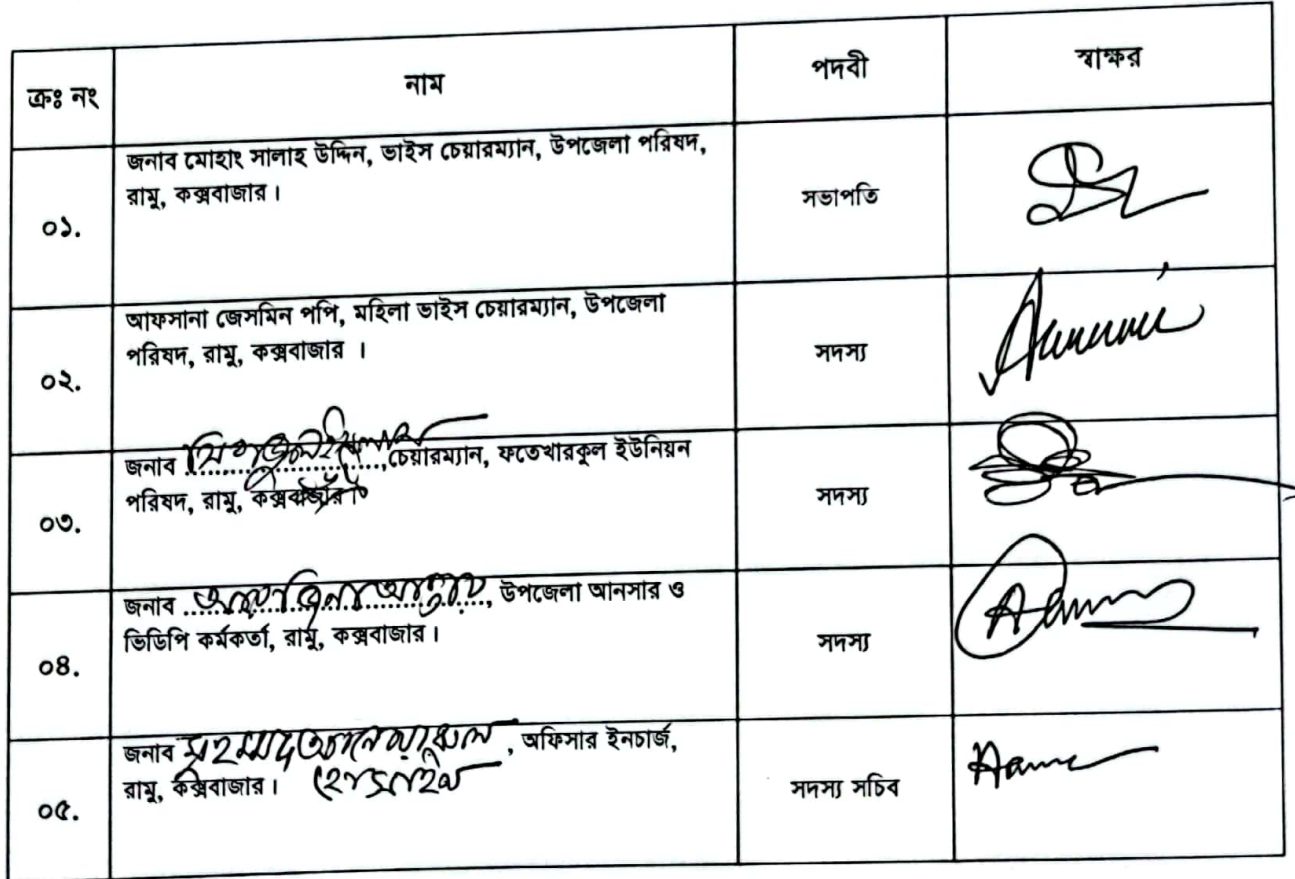 ক্রঃ নং নাম পদবী স্বাক্ষর
জনাব মোহাং সালাহ উদ্দিন, ভাইস চেয়ারম্যান, উপজেলা পরিষদ,
রামু, কক্সবাজার।
০১. সভাপতি
আফসানা জেসমিন পপি, মহিলা ভাইস চেয়ারম্যান, উপজেলা
পরিষদ, রামু, কক্সবাজার ।
০২. সদস্য
জনাব ....................,চেয়ারম্যান, ফতেখারকুল ইউনিয়ন
পরিষদ, রামু, কক্সবাজার।
০৩. সদস্য
জনাব ..............................., উপজেলা আনসার ও
ভিডিপি কর্মকর্তা, রামু, কক্সবাজার।
০৪. সদস্য
জনাব মুহম্মদ , অফিসার ইনচার্জ,
রামু, কক্সবাজার। হোসাইন
০৫. সদস্য সচিব